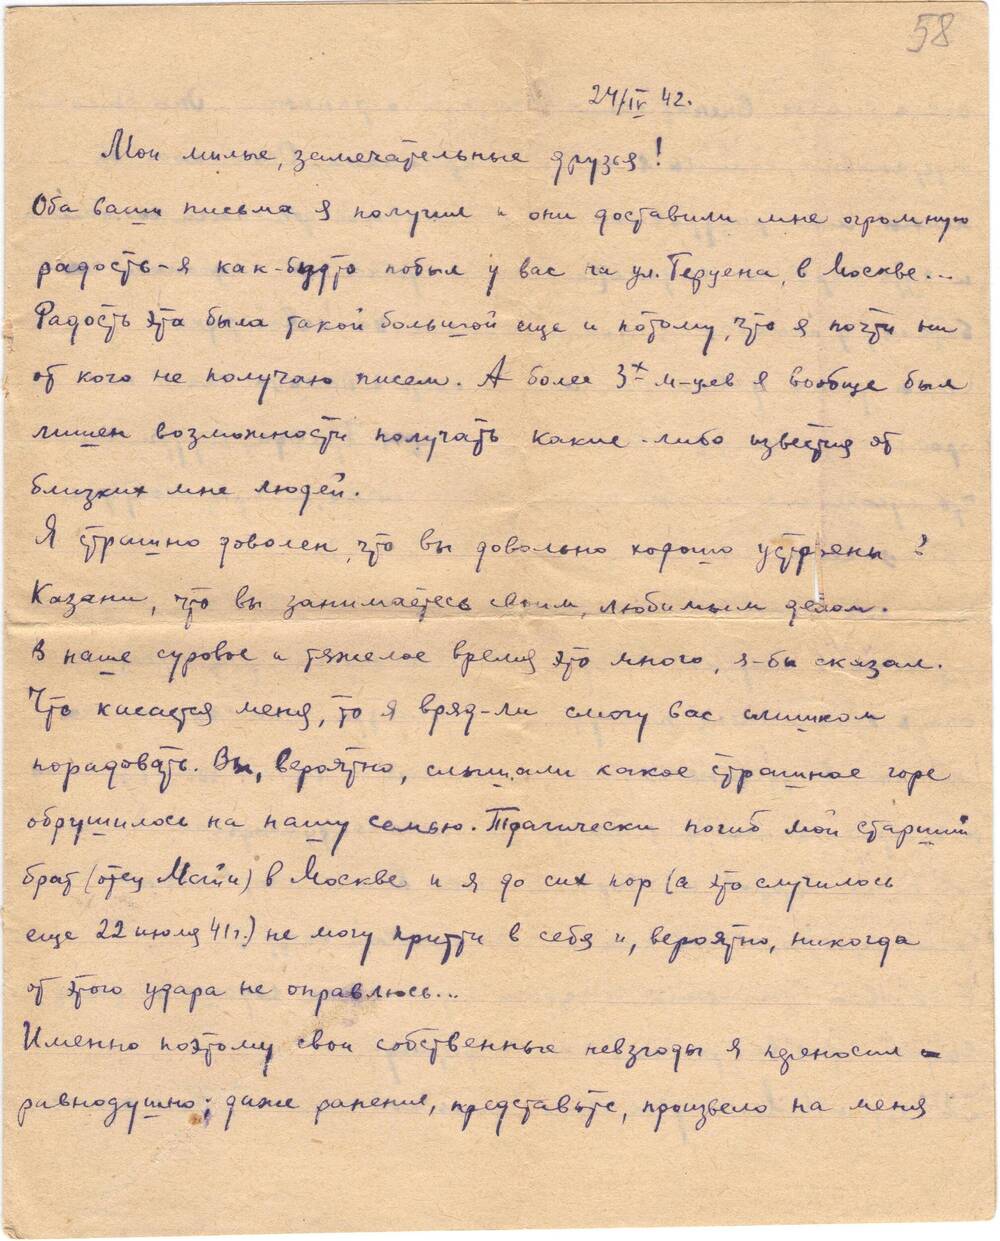 58
24/IV 42.
Мои милые, замечательные друзья!
Оба ваши письма я получил и они доставили мне огромную
радость - я как-будто побыл у вас на ул. Герцена, в Москве...
Радость эта была такой большой еще и потому, что я почти ни
от кого не получаю писем. А более 3х м-цев я вообще был
лишен возможности получать какие-либо известия от
близких мне людей.
Я страшно доволен, что вы довольно хорошо устроены в
Казани, что вы занимаетесь своим, любимым делом.
В наше суровое и тяжелое время это много, я-бы сказал.
Что касается меня, то я вряд-ли смогу вас слишком
порадовать. Вы, вероятно, слышали какое страшное горе
обрушилось на нашу семью. Трагически погиб мой старший
брат (отец Майи) в Москве и я до сих пор (а это случилось
еще 22 июля 41г.) не могу притти в себя и, вероятно, никогда
от этого удара не оправлюсь...
Именно поэтому свои собственные невзгоды я переносил
равнодушно; даже ранения, представьте, произвело на меня